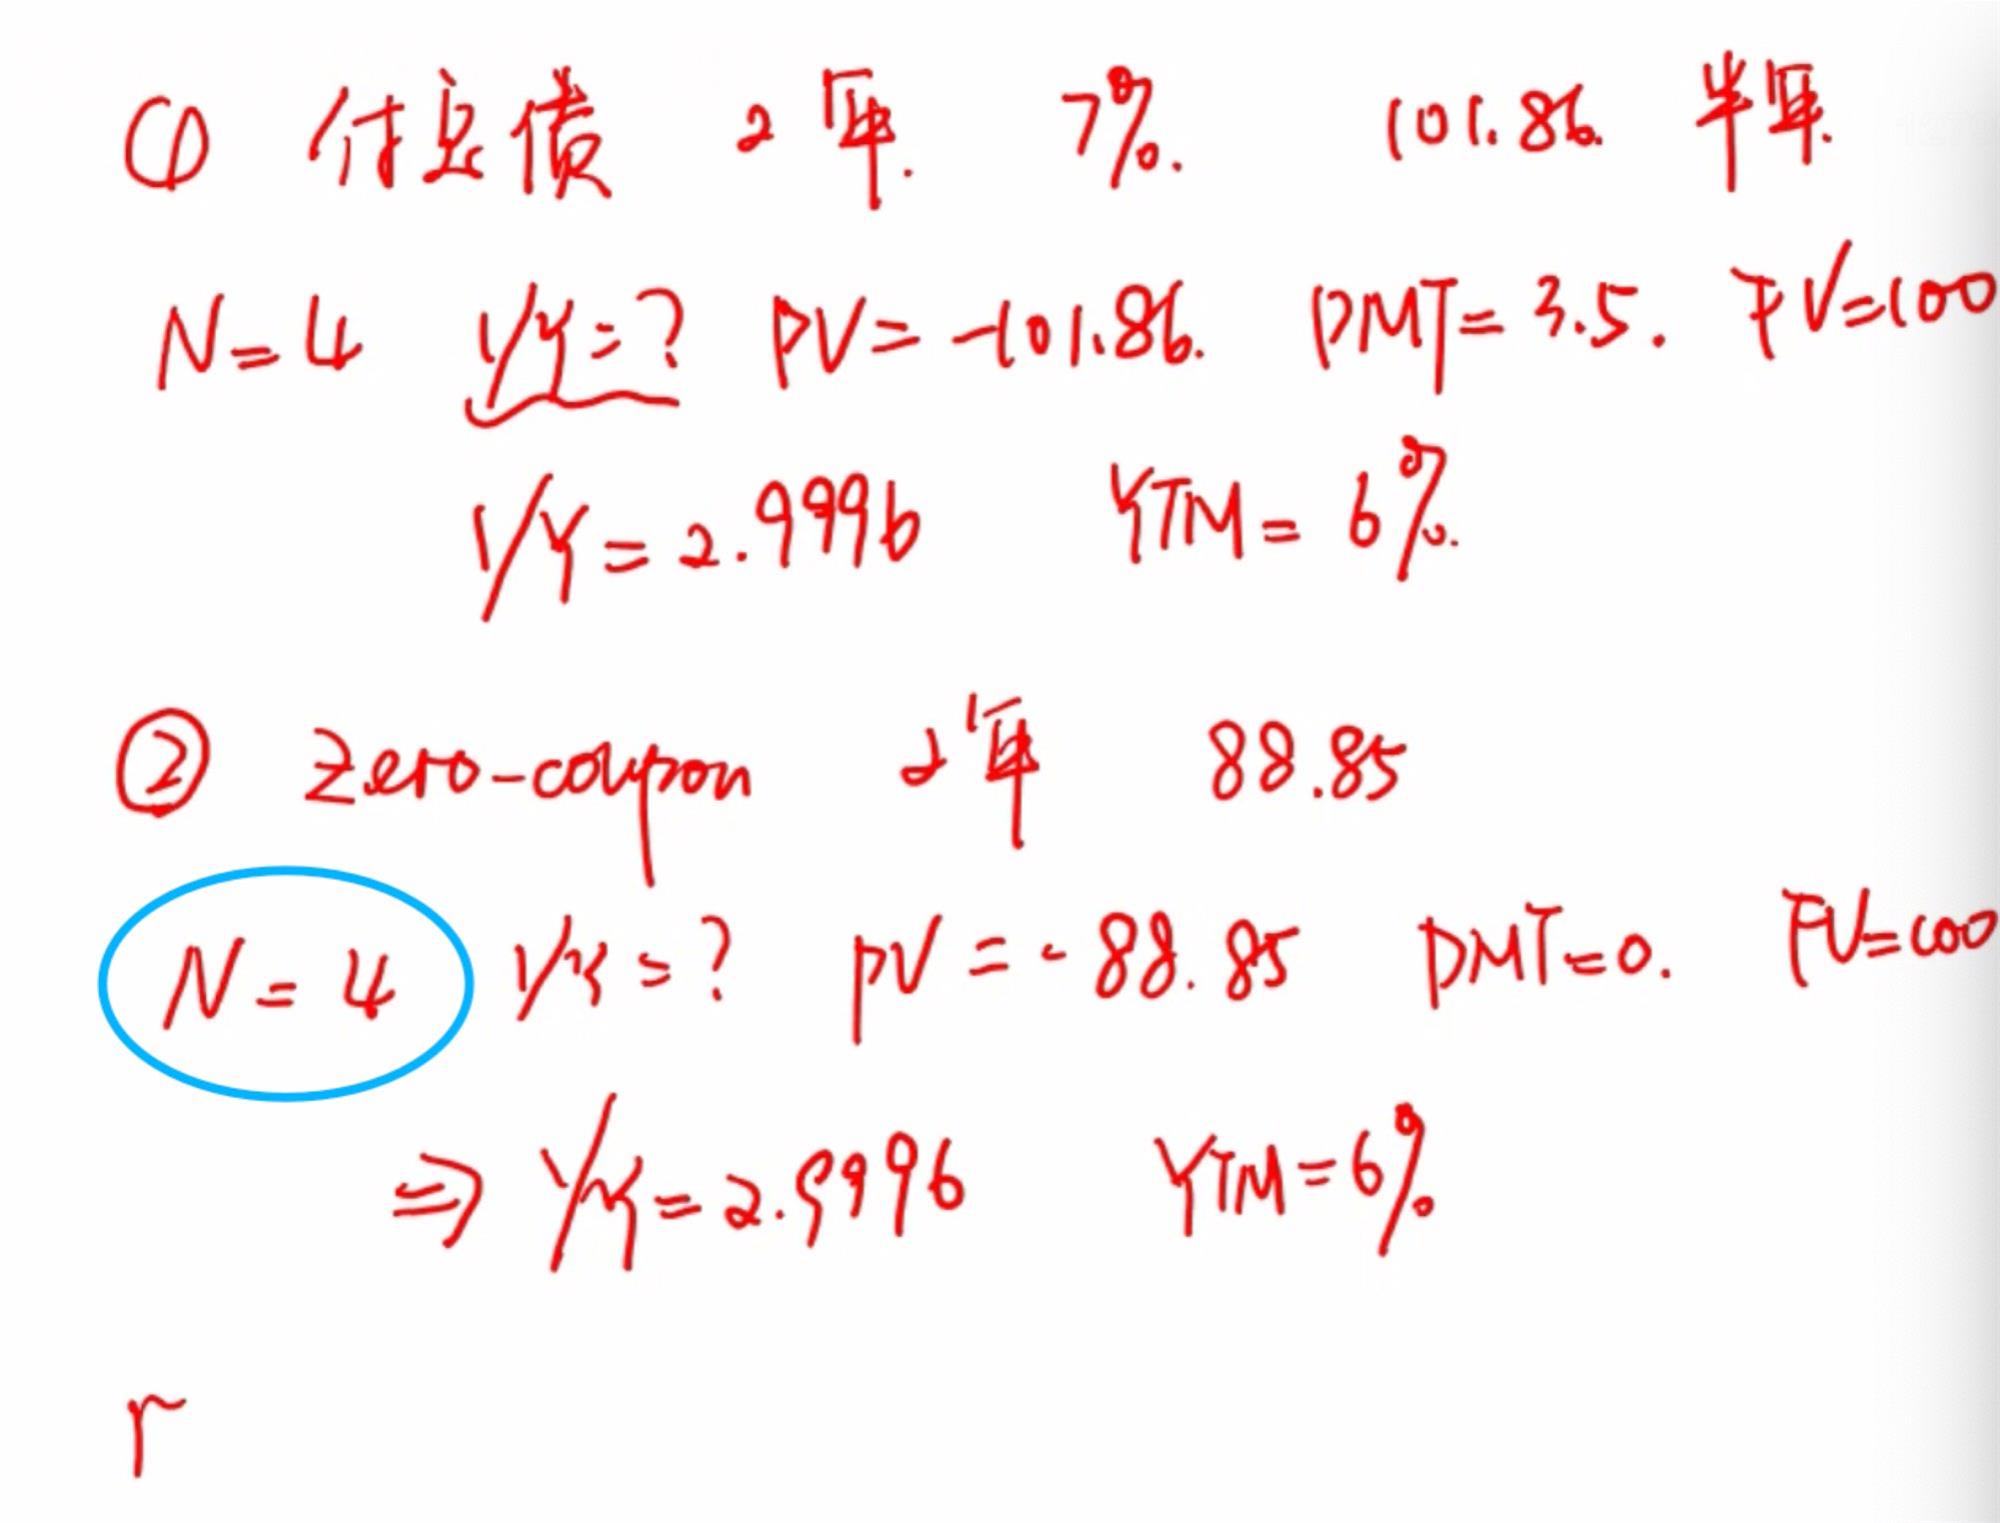 ① 付息债 2年. 7%. 101.86. 半年.
N=4 I/Y=? PV=-101.86. PMT=3.5. FV=100
I/Y=2.9996 YTM=6%.
② zero-coupon 2年 88.85
N=4 I/Y=? PV=-88.85 PMT=0. FV=100
⇒ I/Y=2.9996 YTM=6%
r